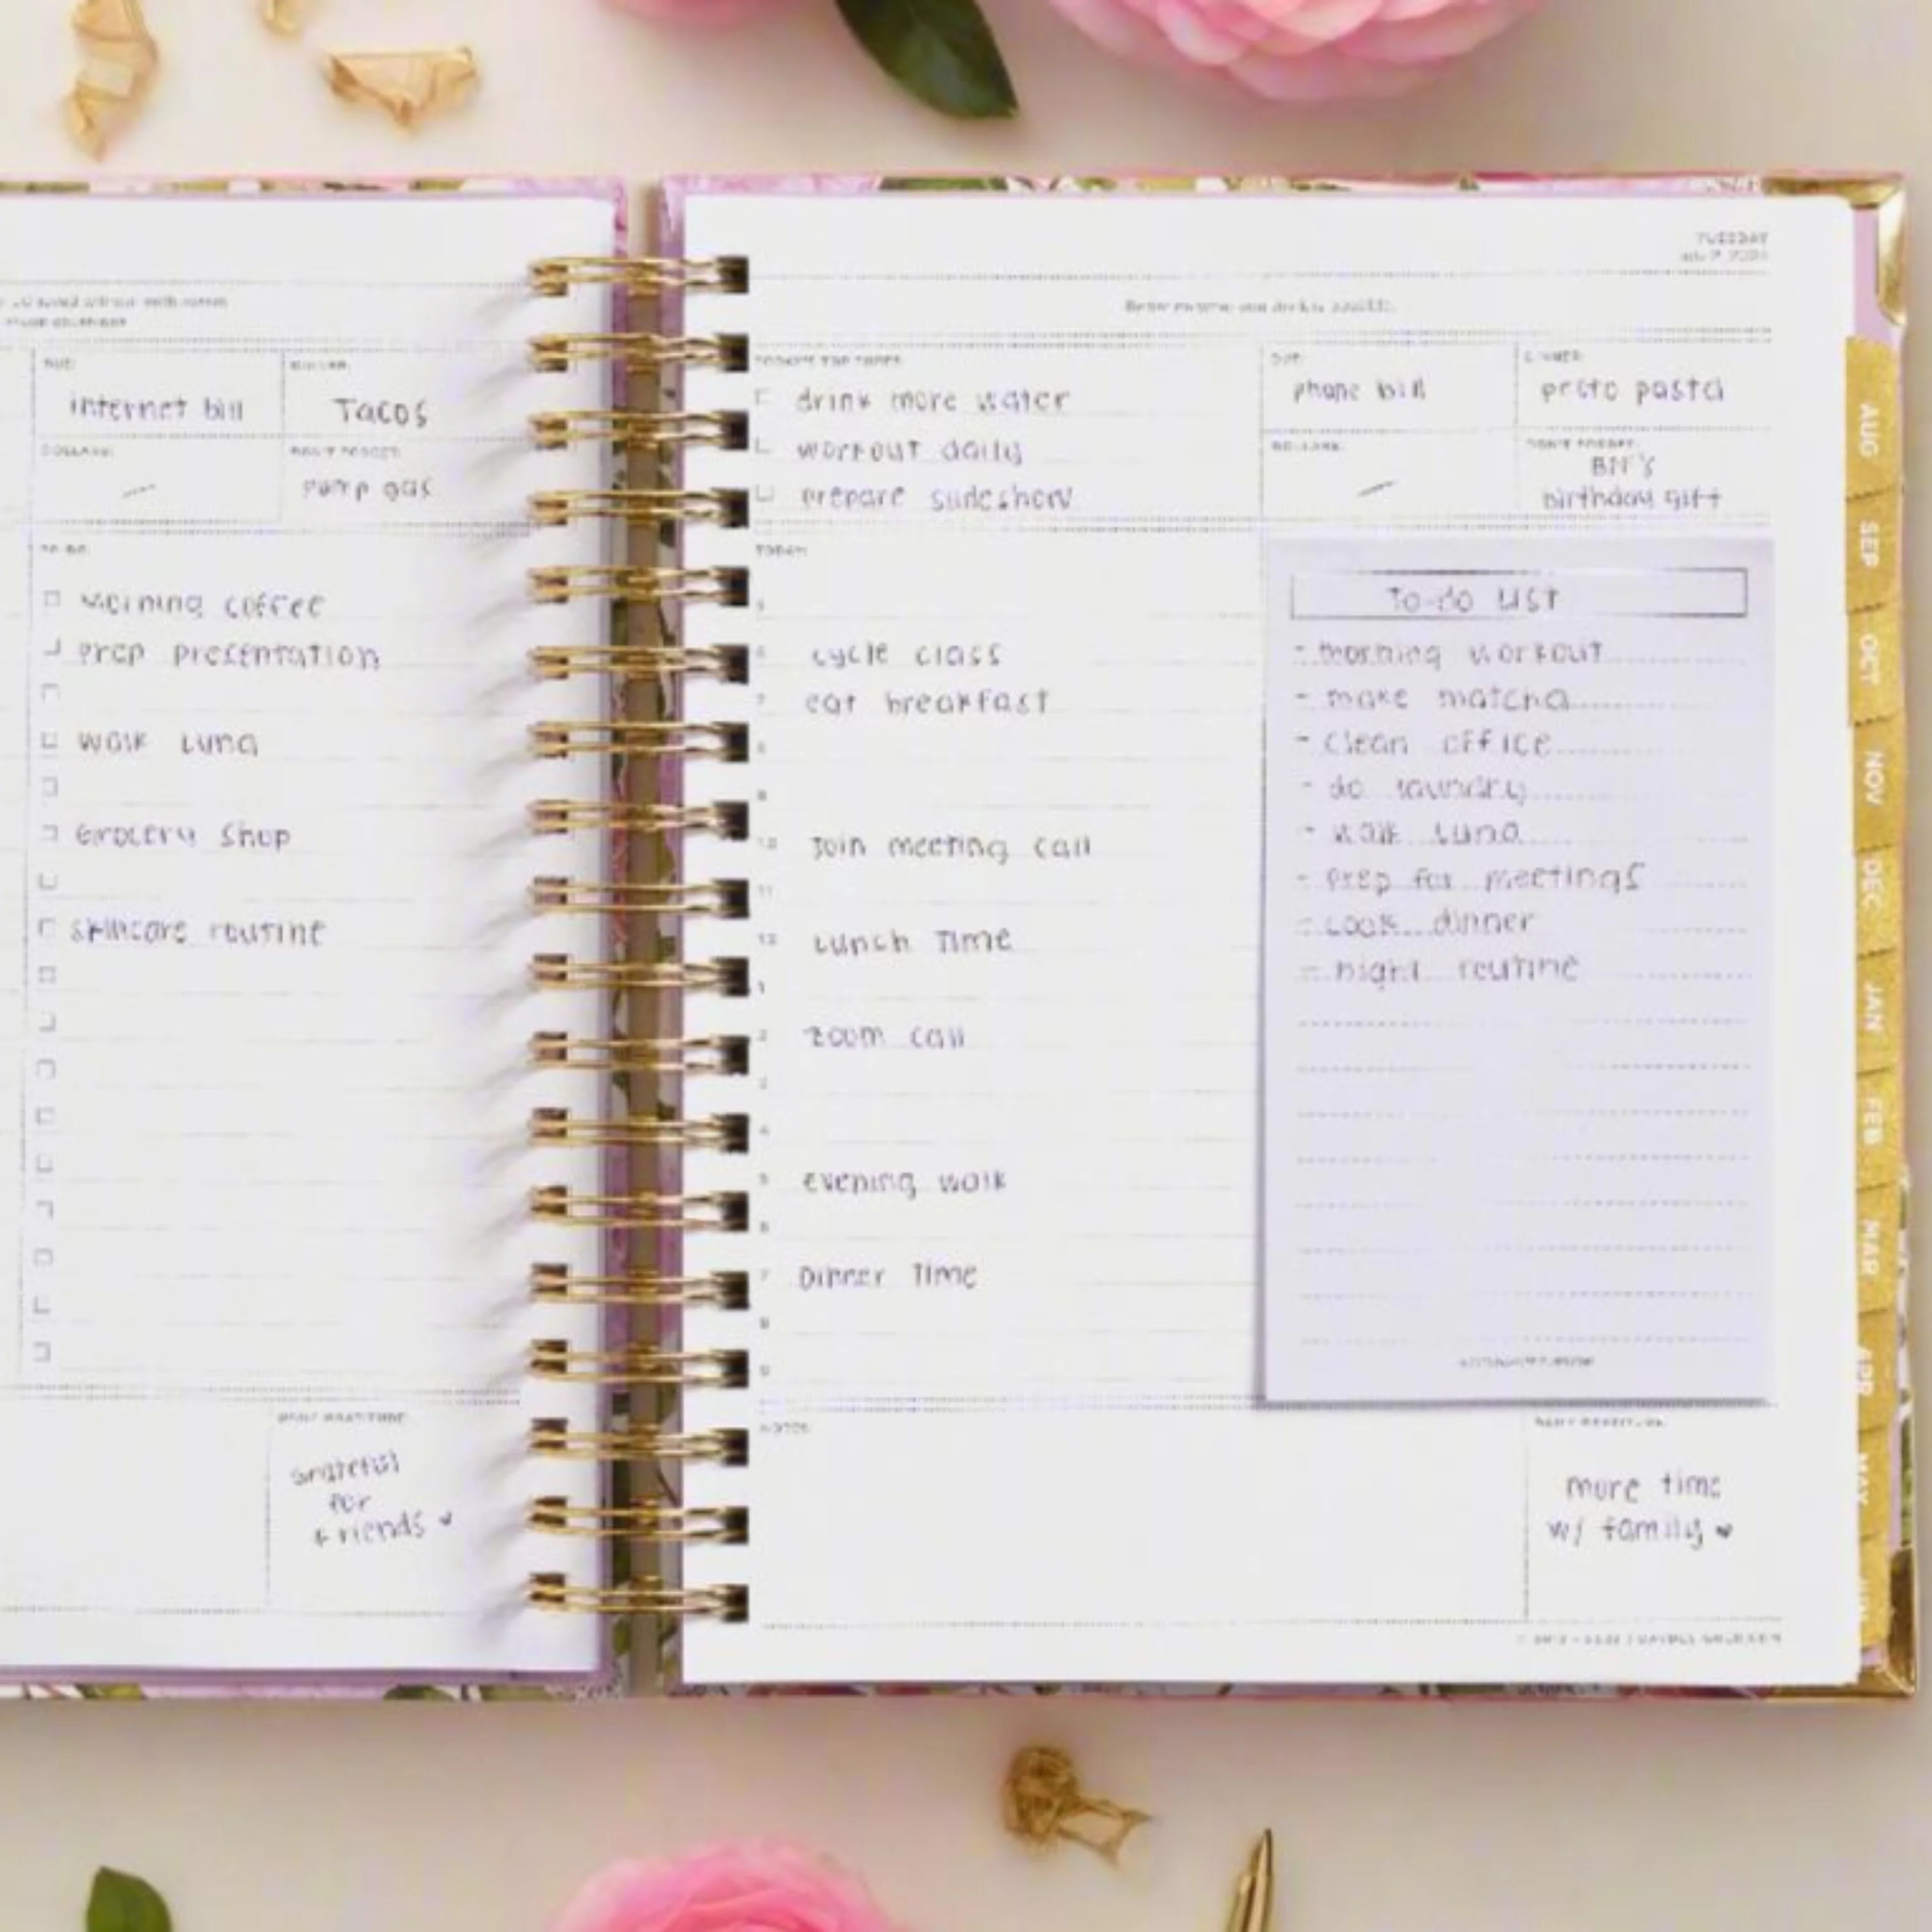 DUE:
internet bill
DINNER:
Tacos
DOLLARS:
DON'T FORGET:
pump gas
TO DO:
Morning coffee
prep presentation
walk Luna
Grocery shop
skincare routine
DAILY GRATITUDE:
Grateful
for
friends
TUESDAY
TODAY'S TOP THREE:
drink more water
workout daily
prepare slideshow
DUE:
phone bill
DINNER:
pesto pasta
DOLLARS:
DON'T FORGET:
BFF's
birthday gift
TODAY:
5
6 cycle class
7 eat breakfast
8
9
10 Join meeting call
11
12 Lunch Time
1
2 zoom call
3
4
5 evening walk
6
7 Dinner Time
8
9
To-do List
- morning workout
- make matcha
- clean office
- do laundry
- walk Luna
- prep for meetings
- cook dinner
- night routine
NOTES:
DAILY GRATITUDE:
more time
w/ family
AUG
SEP
OCT
NOV
DEC
JAN
FEB
MAR
APR
MAY
JUN